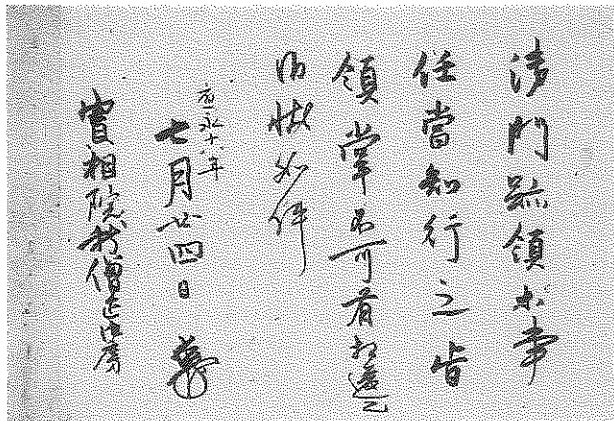 御門跡領等事
任當知行之旨
領掌不可有相違之
狀如件
應永十八年
七月廿四日
實相院前僧正御房